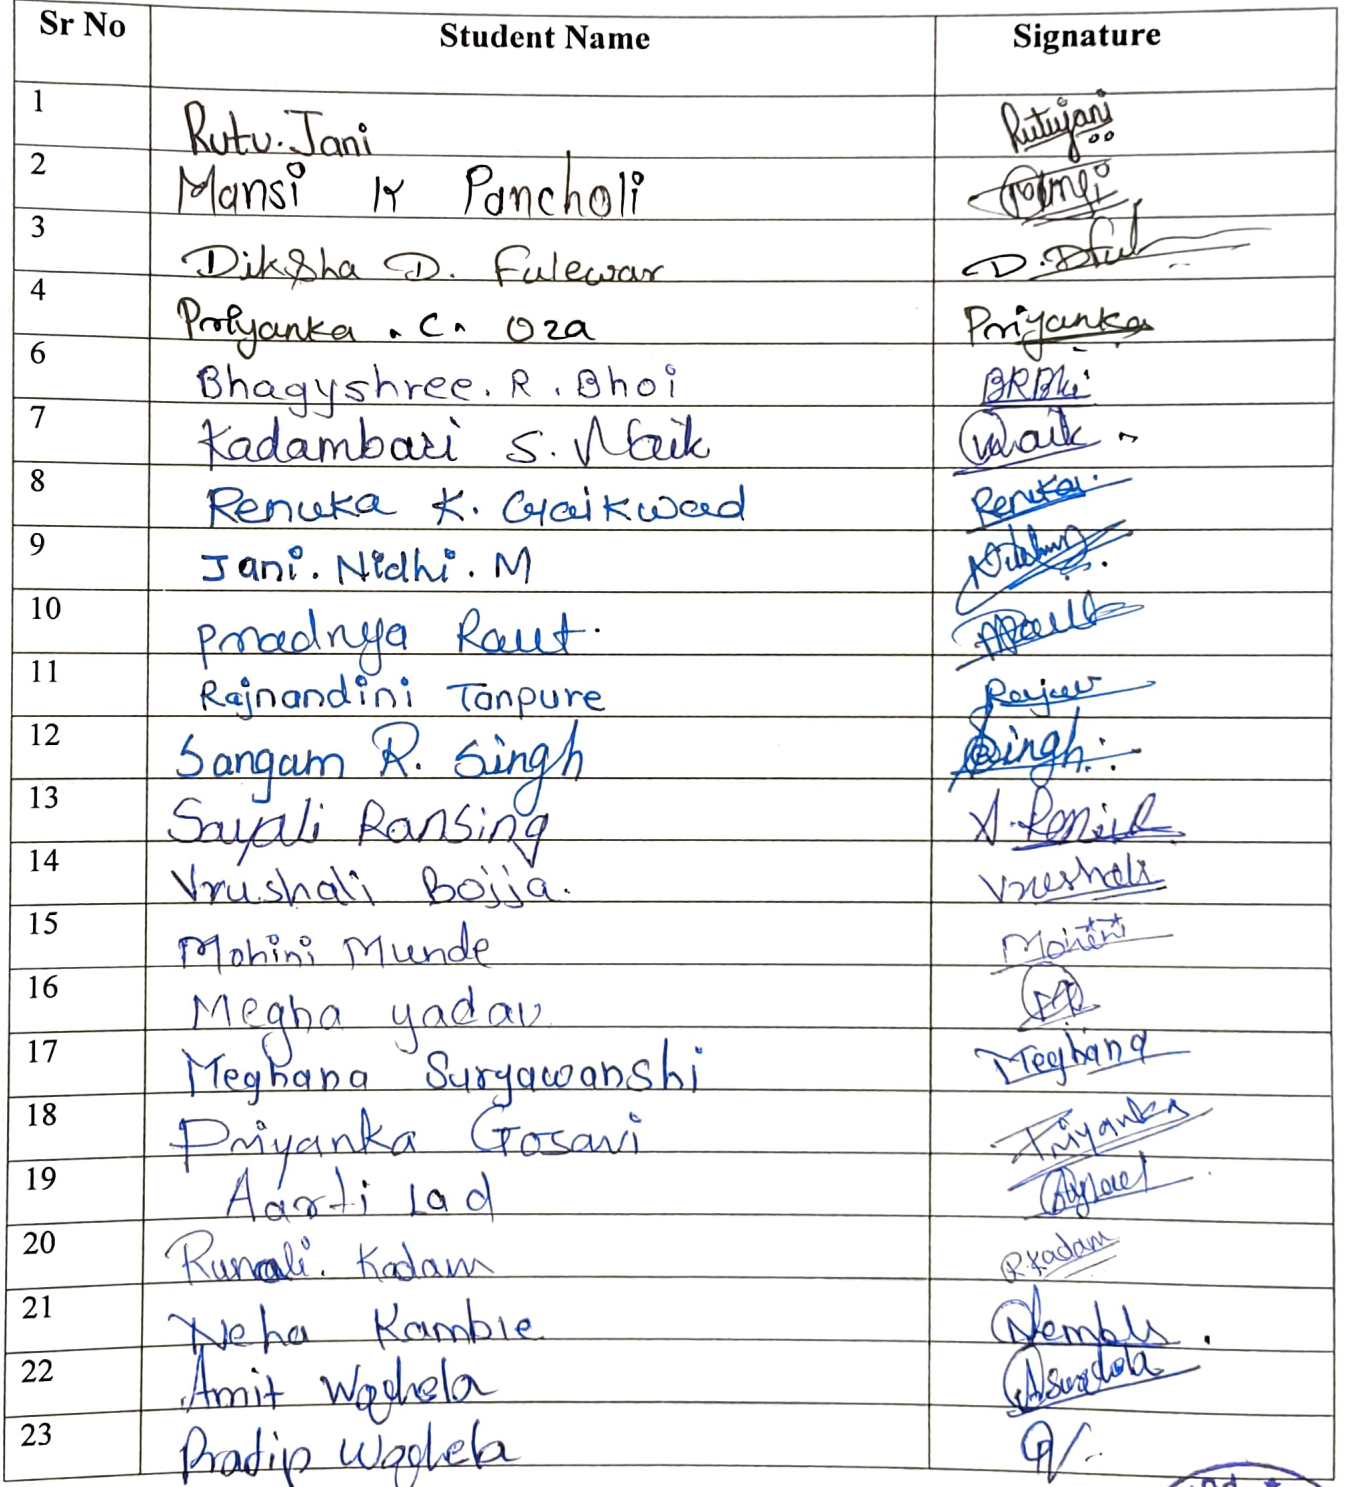 Sr No Student Name Signature
1 Rutu.Jani Rutujani
2 Mansi K Pancholi
3 Diksha D. Fulewar D.
4 Priyanka . C. Oza Priyanka
6 Bhagyshree. R. Bhoi
7 Kadambari S. Naik Naik
8 Renuka K. Gaikwad Renuka
9 Jani. Nidhi. M
10 Pradnya Raut.
11 Rajnandini Tanpure
12 Sangam R. Singh Singh
13 Sayali Ransing
14 Vrushali Bojja. Vrushali
15 Mohini Munde Mohini
16 Megha yadav
17 Meghana Suryawanshi Meghana
18 Priyanka Gosavi Priyanka
19 Aarti Lad
20 Runali. Kadam RKadam
21 Neha Kamble
22 Amit Waghela
23 Pradip Waghela